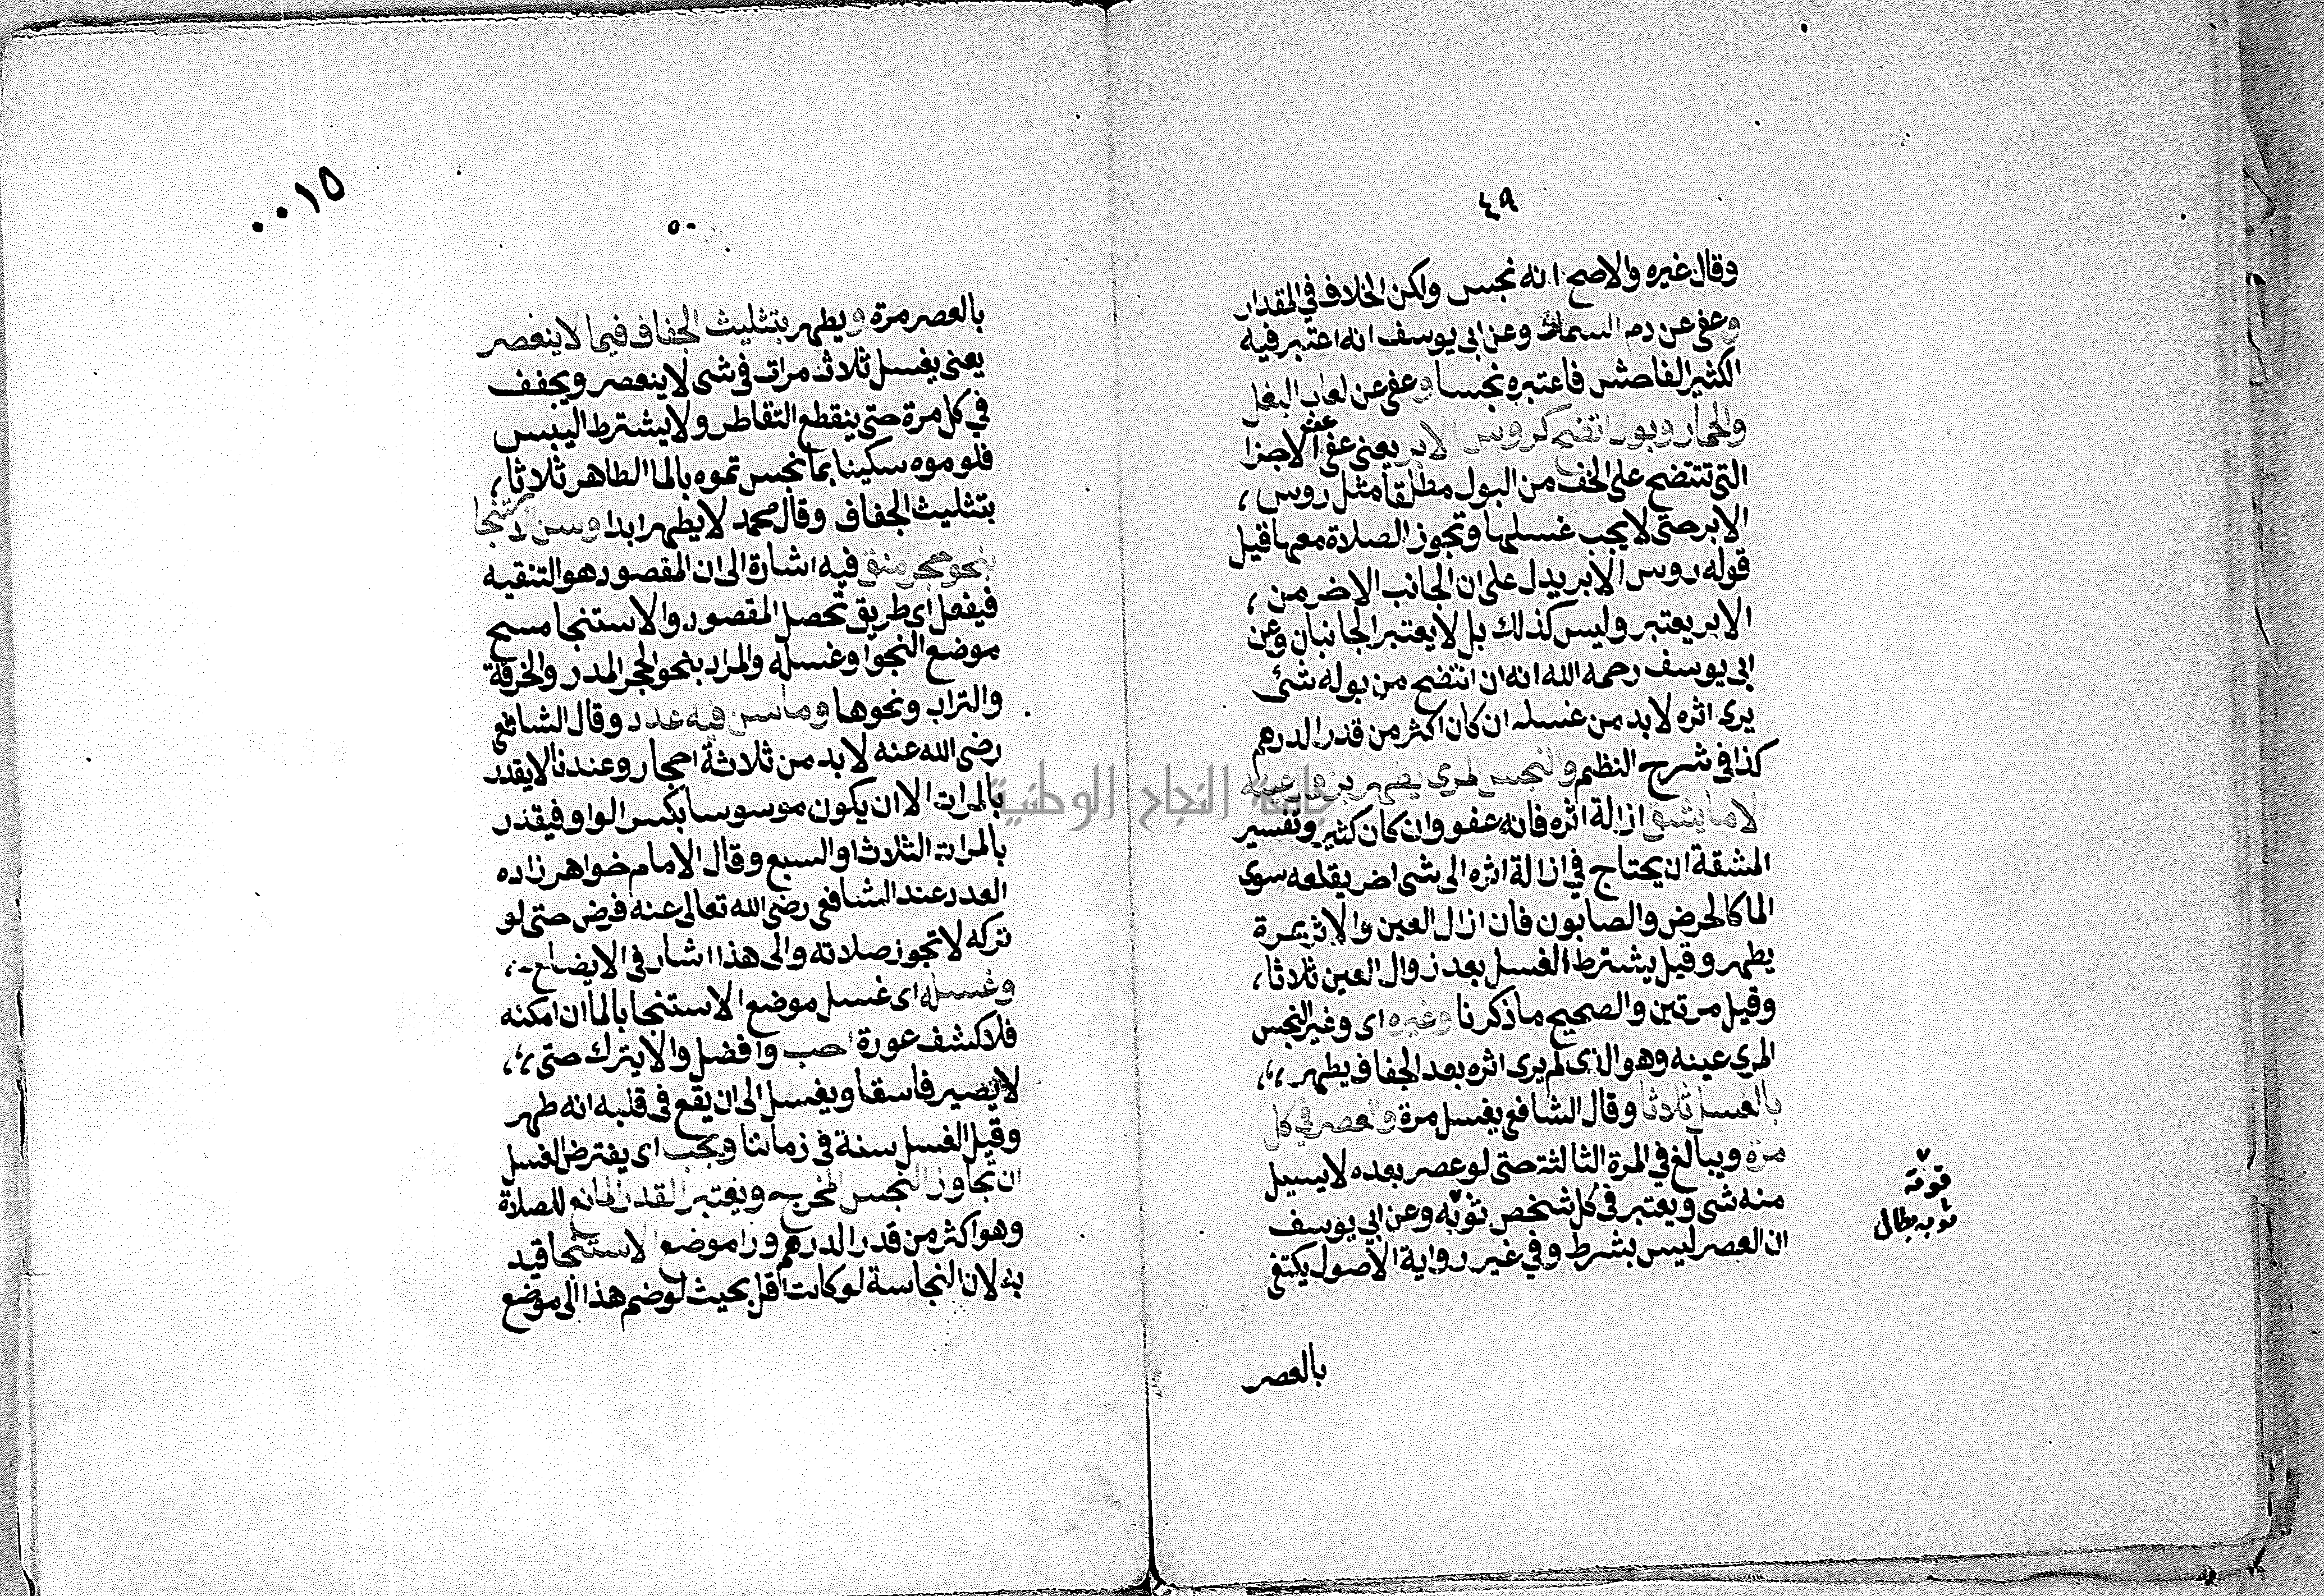 ٤٩
وقال غيره والاصح انه نجس ولكن الخلاف في المقدار
وعفى عن دم السمك وعن ابى يوسف انه اعتبر فيه
الكثير الفاحش فاعتبره نجسا وعفى عن لعاب البغل
والحمار وبول انتضح كروس الابر يعنى عفى عن الاجزا
التى تنتضح على الخف من البول مطلقا مثل روس
الابر حتى لا يجب غسلها وتجوز الصلاة معها قيل
قوله روس الابر يدل على ان الجانب الاخر من
الابر يعتبر وليس كذلك بل لا يعتبر الجانبان وعن
ابى يوسف رحمه الله انه ان انتضح من بوله شئ
يرى اثره لا بد من غسله ان كان اكثر من قدر الدرهم
كذا فى شرح النظم والنجس المرى يطهر بزوال عينه
الا ما يشق ازالة اثره فانه عفو وان كان كثير وتفسير
المشقة ان يحتاج في ازالة اثره الى شى اخر يقلعه سوى
الما كالحرض والصابون فان ازال العين والاثر بمرة
يطهر وقيل يشترط الغسل بعد زوال العين ثلاثا
وقيل مرتين والصحيح ما ذكرنا وغيره اى وغير النجس
المرى عينه وهو الذى لم يرى اثره بعد الجفاف يطهر
بالغسل ثلاثا وقال الشافعى يغسل مرة والعصر في كل
مرة ويبالغ في المرة الثالثة حتى لو عصر بعده لا يسيل
منه شى ويعتبر فى كل شخص ثوبه وعن ابي يوسف
ان العصر ليس بشرط وفي غير رواية الاصول يكتفى
بالعصر
قوته
٥٠
٠٠١٥
بالعصر مرة ويطهر بتثليث الجفاف فيما لا ينعصر
يعنى يغسل ثلاث مرات فى شى لا ينعصر ويجفف
في كل مرة حتى ينقطع التقاطر ولا يشترط اليبس
فلو موه سكينا بما نجس تموه بالما الطاهر ثلاثا
بتثليث الجفاف وقال محمد لا يطهر ابدا وسن الاستنجا
بنحو حجر منق فيه اشارة الى ان المقصود هو التنقيه
فيفعل اى طريق تحصل المقصود والاستنجا مسح
موضع النجو او غسله والمراد بنحو الحجر المدر والخرقة
والتراب ونحوها وما سن فيه عدد وقال الشافعى
رضى الله عنه لا بد من ثلاثة احجار وعندنا لا يقدر
بالمرات الا ان يكون موسوسا بكسر الواو فيقدر
بالمرات الثلاث او السبع وقال الامام خواهر زاده
العدد عند الشافعى رضى الله تعالى عنه فرض حتى لو
تركه لا تجوز صلاته والى هذا اشار فى الايضاح
وغسله اى غسل موضع الاستنجا بالما ان امكنه
فلا كشف عورة احب وافضل والا يترك حتى
لا يصير فاسقا ويغسل الى ان يقع فى قلبه انه طهر
وقيل الغسل سنة فى زماننا ويجب اى يفترض الغسل
ان تجاوز النجس المخرج ويعتبر القدر المانع للصلاة
وهو اكثر من قدر الدرهم ورا موضع الاستنجا قيد
به لان النجاسة لو كانت اقل بحيث لو ضم هذا الى موضع
جامعة النجاح الوطنية